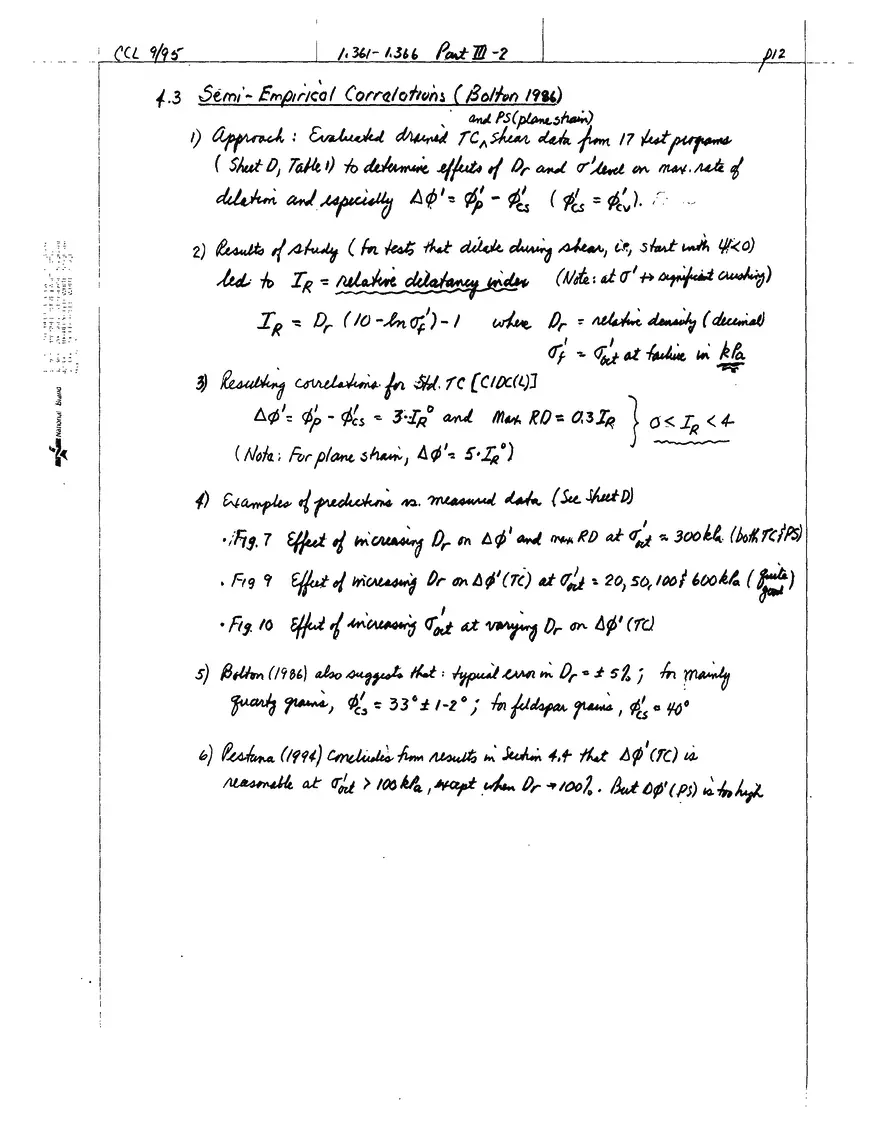 CCL 9/95 1.361-1.366 Part III-2 p12
4.3 Semi-Empirical Correlations (Bolton 1986)
and PS (plane strain)
1) Approach : Evaluated drained TC ∧ shear data from 17 test programs
( Sheet D, Table 1) to determine effects of Dr and σ' level on max. rate of
dilation and especially Δφ' = φ'p - φ'cs ( φ'cs = φ'cv ).
2) Results of study ( for tests that dilate during shear, i.e., start with ψ<0)
led to IR = relative dilatancy index (Note: at σ' ↔ significant crushing)
IR = Dr (10 - ln σ'f) - 1 where Dr = relative density (decimal)
σ'f = σ'oct at failure in kPa
3) Resulting correlations for Std. TC [CIDC(L)]
Δφ' = φ'p - φ'cs = 3·IR° and Max. RD = 0.3 IR } 0 < IR < 4
(Note: For plane strain, Δφ' = 5·IR°)
4) Examples of predictions vs. measured data (See Sheet D)
• Fig. 7 Effect of increasing Dr on Δφ' and max RD at σ'oct ≈ 300 kPa (both TC & PS)
• Fig 9 Effect of increasing Dr on Δφ' (TC) at σ'oct = 20, 50, 100 & 600 kPa (quite good)
• Fig. 10 Effect of increasing σ'oct at varying Dr on Δφ' (TC)
5) Bolton (1986) also suggests that : typical error in Dr = ± 5% ; for mainly
quartz grains, φ'cs = 33° ± 1-2° ; for feldspar grains, φ'cs = 40°
6) Pestana (1994) concludes from results in Section 4.4 that Δφ' (TC) is
reasonable at σ'oct > 100 kPa, except when Dr → 100%. But Δφ' (PS) is too high
National Brand